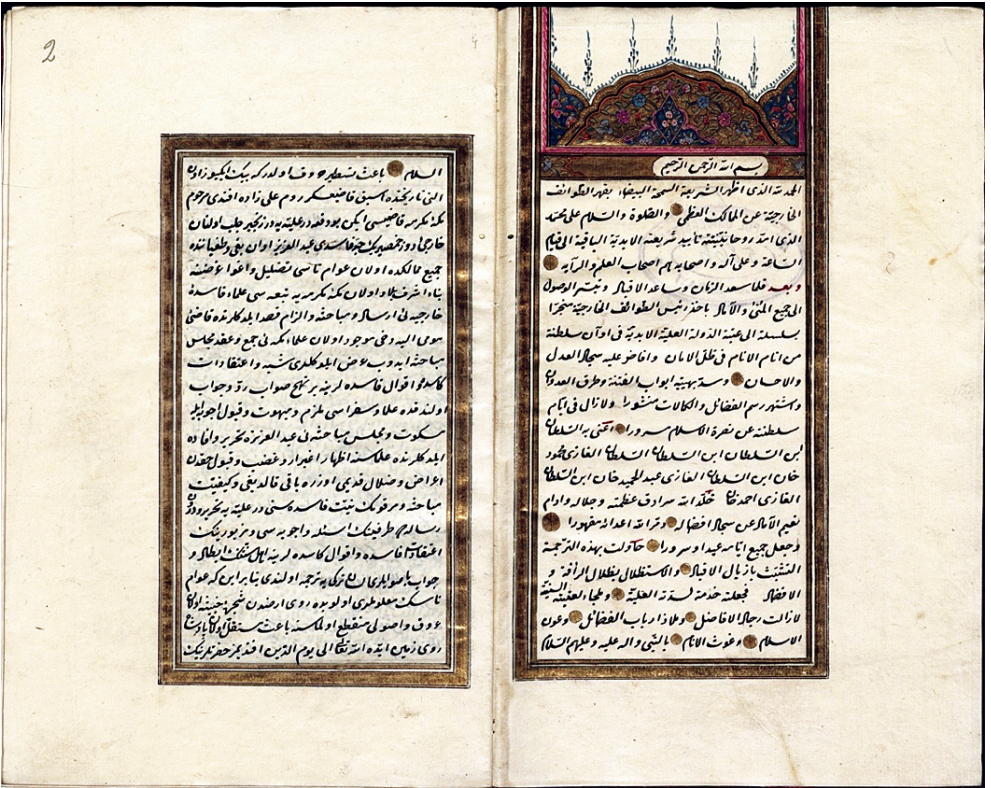 بسم الله الرحمن الرحيم
الحمد لله الذى اظهر الشريعة السمحة البيضاء بقهر الطوائف
الخارجية عن الممالك العظمى والصلوة والسلام على محمد
الذى امتد روحانيته تأبيد شريعته الابدية الباقية الى قيام
الساعة وعلى آله واصحابه هم اصحاب العلم والدراية
وبعد فلما سعد الزمان وساعد الاقبال وتيسر الوصول
الى جميع المنى والآمال باخذ رئيس الطوائف الخارجية منجرا
بسلسلة الى عتبة الدولة العلية الابدية فى اوآن سلطنة
من انام الانام فى ظل الامان وافاض عليه سجال العدل
والاحسان وسد بهيبته ابواب الفتنة وطرق العدوان
واشتهر رسم الفضائل والكمالات منشورا ولازال فى ايام
سلطنته عن نصرة الاسلام مسرورا اعنى به السلطان
ابن السلطان ابن السلطان السلطان الغازى محمود
خان ابن السلطان الغازى عبد الحميد خان ابن السلطان
الغازى احمد خان خلد الله سرادق عظمته وجلاله وادام
نعيم الآمال عن سجال افضاله وقر الله اعدائه مقهورا
وجعل جميع ايامه عيدا وسرورا حاولت بهذه الترجمة
التشبث باذيال الاقبال والاستظلال بظلال الرأفة و
الافضال فجعلته خدمة لسدته العلية وملجاء العتبته السنية
لازالت رجال الافاضل وملاذ ارباب الفضائل وعون
الاسلام وغوث الانام بالنبى واله عليه وعليهم السلام
السلام باعث تسطير حروف اولدر كه بيك ايكيوز اوان
التى تاريخنده اسبق قاضيعسكر روم على زاده افندى مرحوم
مكه مكرمه قاضيسى ايكن بو دفعه در عليه يه در زنجير جلب اولنان
خارجى اوزره عبد العزيز اوان بغى وطغياننده
جميع ممالكده اولان عوام ناسى تضليل واغوا غرضنه
بناء اشرف بلاد اولان مكه مكرمه يه تبعه سى علماء فاسدۀ
خارجيه نى ارسال ومباحثه والزام قصد ايلدكلرنده قاضئ
مومى اليه دخى موجود اولان علماء مكه نى جمع وعقد مجلس
مباحثه ايدوب عرض ايلدكلرى شبه واعتقادات
كاسده واقوال فاسده لرينه بر نهج صواب رد وجواب
اولندقده علما وسفراسى ملزم ومبهوت وقبول اجوبه ايله
سكوت ومجلس مباحثه نى عبد العزيزه تحرير وافاده
ايلدكلرنده علماسنه اظهار اغبرار وغضب وقبول حقدن
اعراض وضلال قديمى اوزره باقى قالديغى وكيفيت
مباحثه ومرقومك نيت فاسده سنى در عليه يه تحرير
رساله طرفينك اسئله واجوبه سى ومزبورينك
اعتقادات فاسده واقوال كاسده لرينه
جواب باصوابلرى تركى يه ترجمه اولندى بنابرين كه عوام
ناسك معلوملرى اولوبده روى ارضدن شجرۀ خبيثه
عروق واصولى منقطع اولماسنه باعث مستقل
روى زمين ايده الله تعالى الى يوم الدين افندمز حضرتلرينك
2